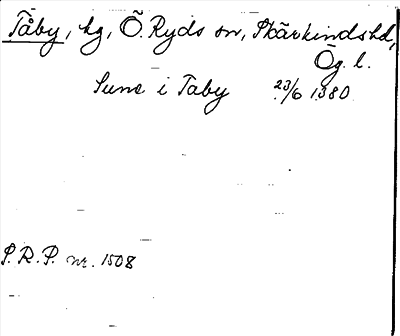 Tåby, hg, Ö. Ryds sn, Skärkindshd,
Ög. l.
Sune i Taby 23/6 1380
P. R. P. nr. 1508